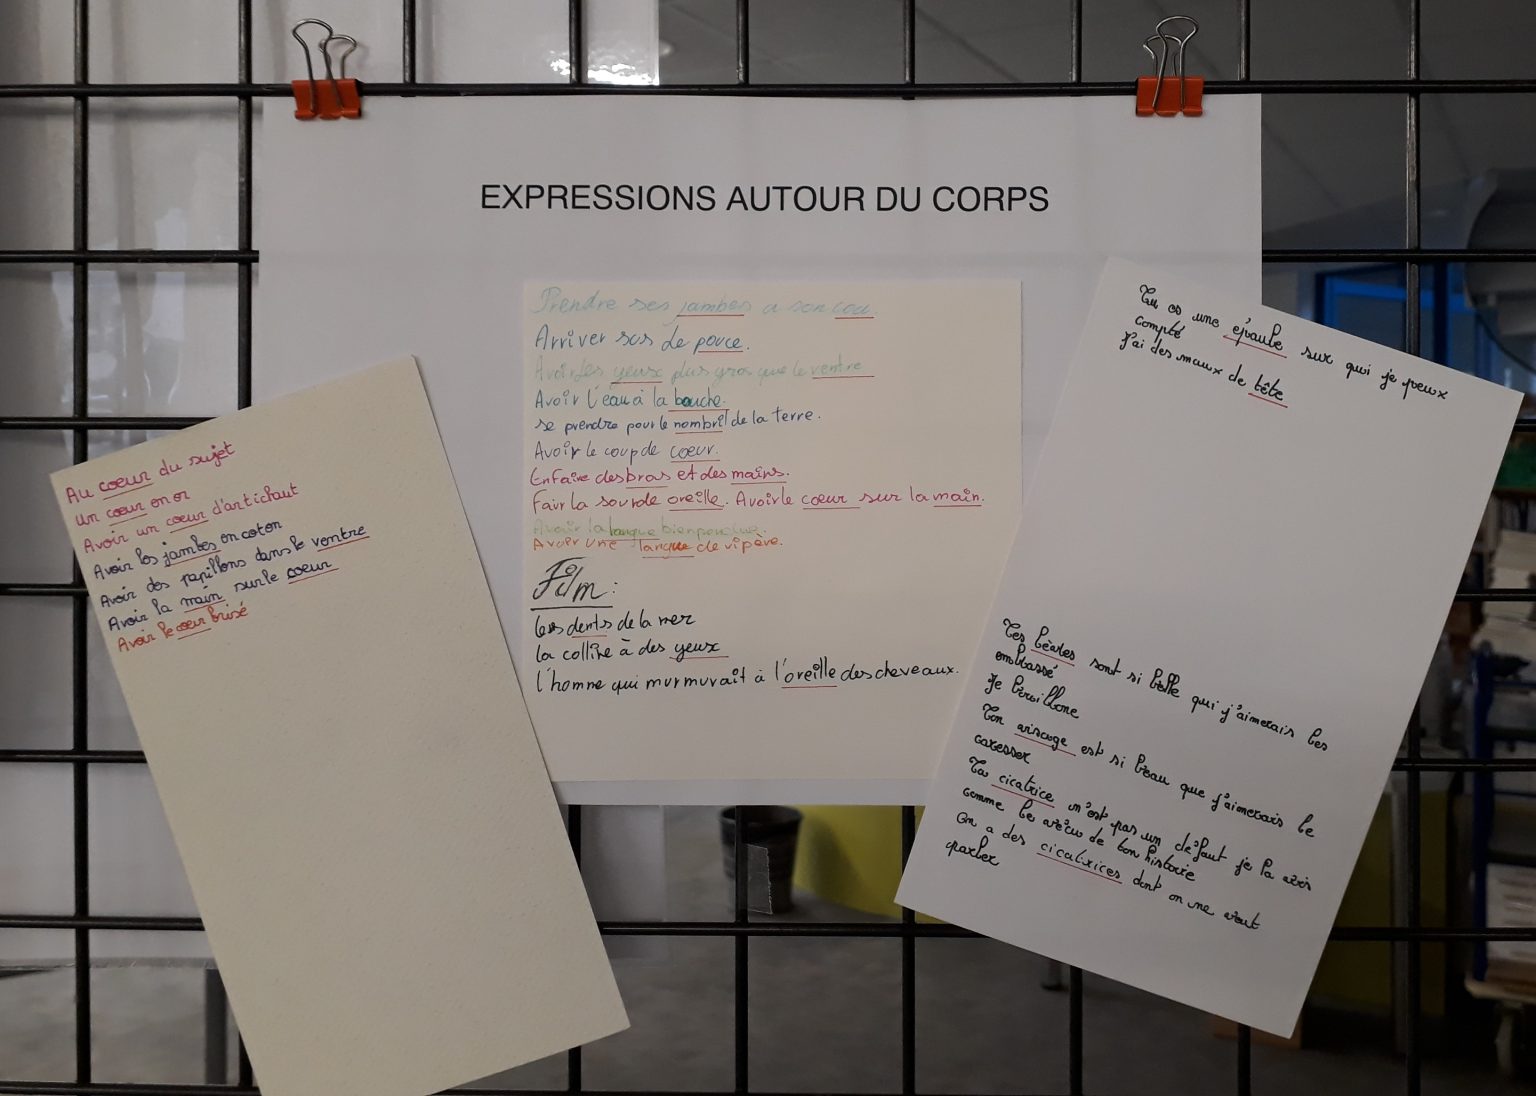 EXPRESSIONS AUTOUR DU CORPS
Au coeur du sujet
Un coeur en or
Avoir un coeur d'artichaut
Avoir les jambes en coton
Avoir des papillons dans le ventre
Avoir la main sur le coeur
Avoir le coeur brisé
Prendre ses jambes a son cou.
Arriver sos de pouce.
Avoir les yeux plus gros que le ventre
Avoir l'eau à la bouche.
se prendre pour le nombril de la terre.
Avoir le coup de coeur.
En faire des bras et des mains.
Fair la sourde oreille. Avoir le coeur sur la main.
Avoir la langue bien pendue.
Avoir une langue de vipère.
Film :
les dents de la mer
la colline à des yeux
l'homme qui murmurait à l'oreille des cheveaux.
Tu es une épaule sur qui je peux
compté
J'ai des maux de tête
Tes lèvres sont si belle qui j'aimerais les
embrassé
Je
Ton visage est si beau que j'aimerais le
caresser
Ta cicatrice n'est pas un défaut je la vois
comme le vécu de ton histoire
On a des cicatrices dont on ne veut
parler